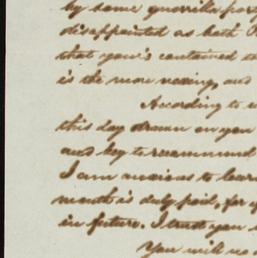 by some guerrilla par
disappointed as both
that your's contained
is the more vexing, and
According to
this day drawn on you
and beg to recommend
I am anxious to learn
month is duly paid, for
in future. I trust you
You will